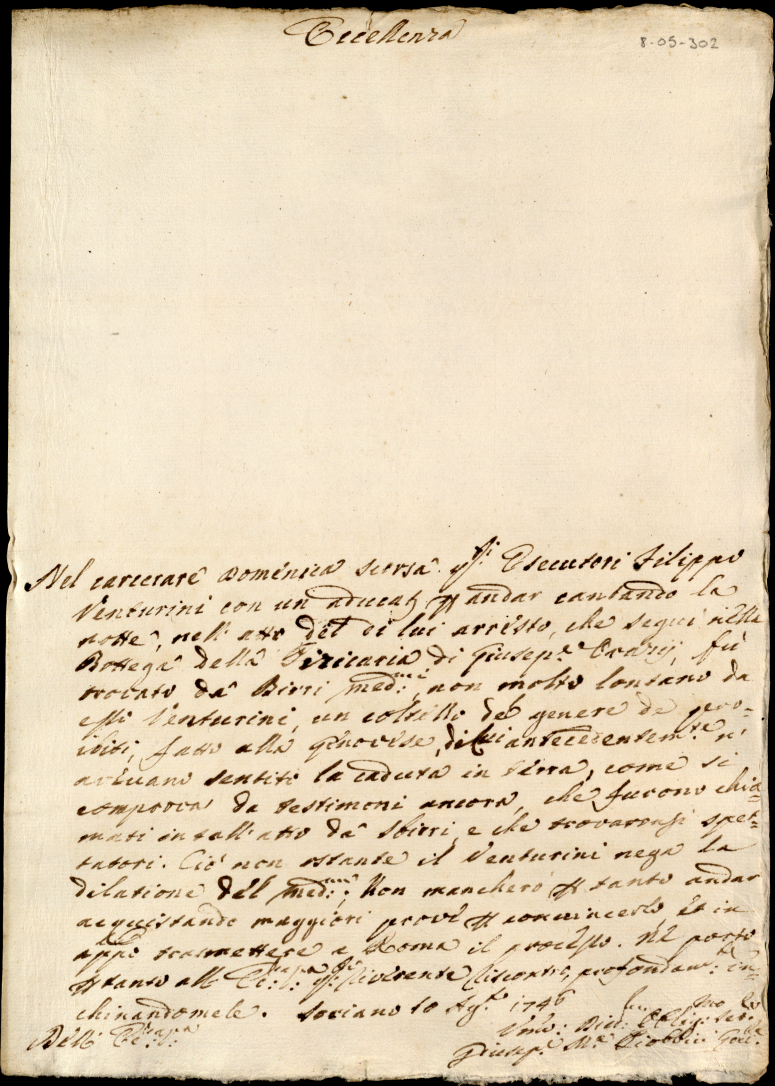 Eccellenza
8-05-302
Nel carcerare Domenica scorsa gli Esecutori Filippo
Venturini con un andar cantando la
notte, nell' atto del di lui arresto, che seguì nella
Bottega della di Giusepe Orazij, fù
trovato da Birri medmi, non molto lontano da
esso Venturini, un coltello de genere de proi-
biti, fatto alla genovese, di cui antecedentemte n'
avevano sentito la caduta in terra, come si
comprova da testimoni ancora, che furono chia-
mati in tall' atto da sbirri, e che trovaronsi spet-
tatori. Ciò non ostante il Venturini nega la
dilatione del medmo; Non mancherò p tanto andar
acquistando maggiori prove p convincerlo, et in
appo trasmettere a Roma il processo. Ne porto
p tanto all' Eccza Vra riverente riscontro, profondamte in-
chinandomele. Soriano 10 Agto 1746
Dell' Eccza Vra
Umo: Divo: Oblig: Serre
Giusepe Ma Gove